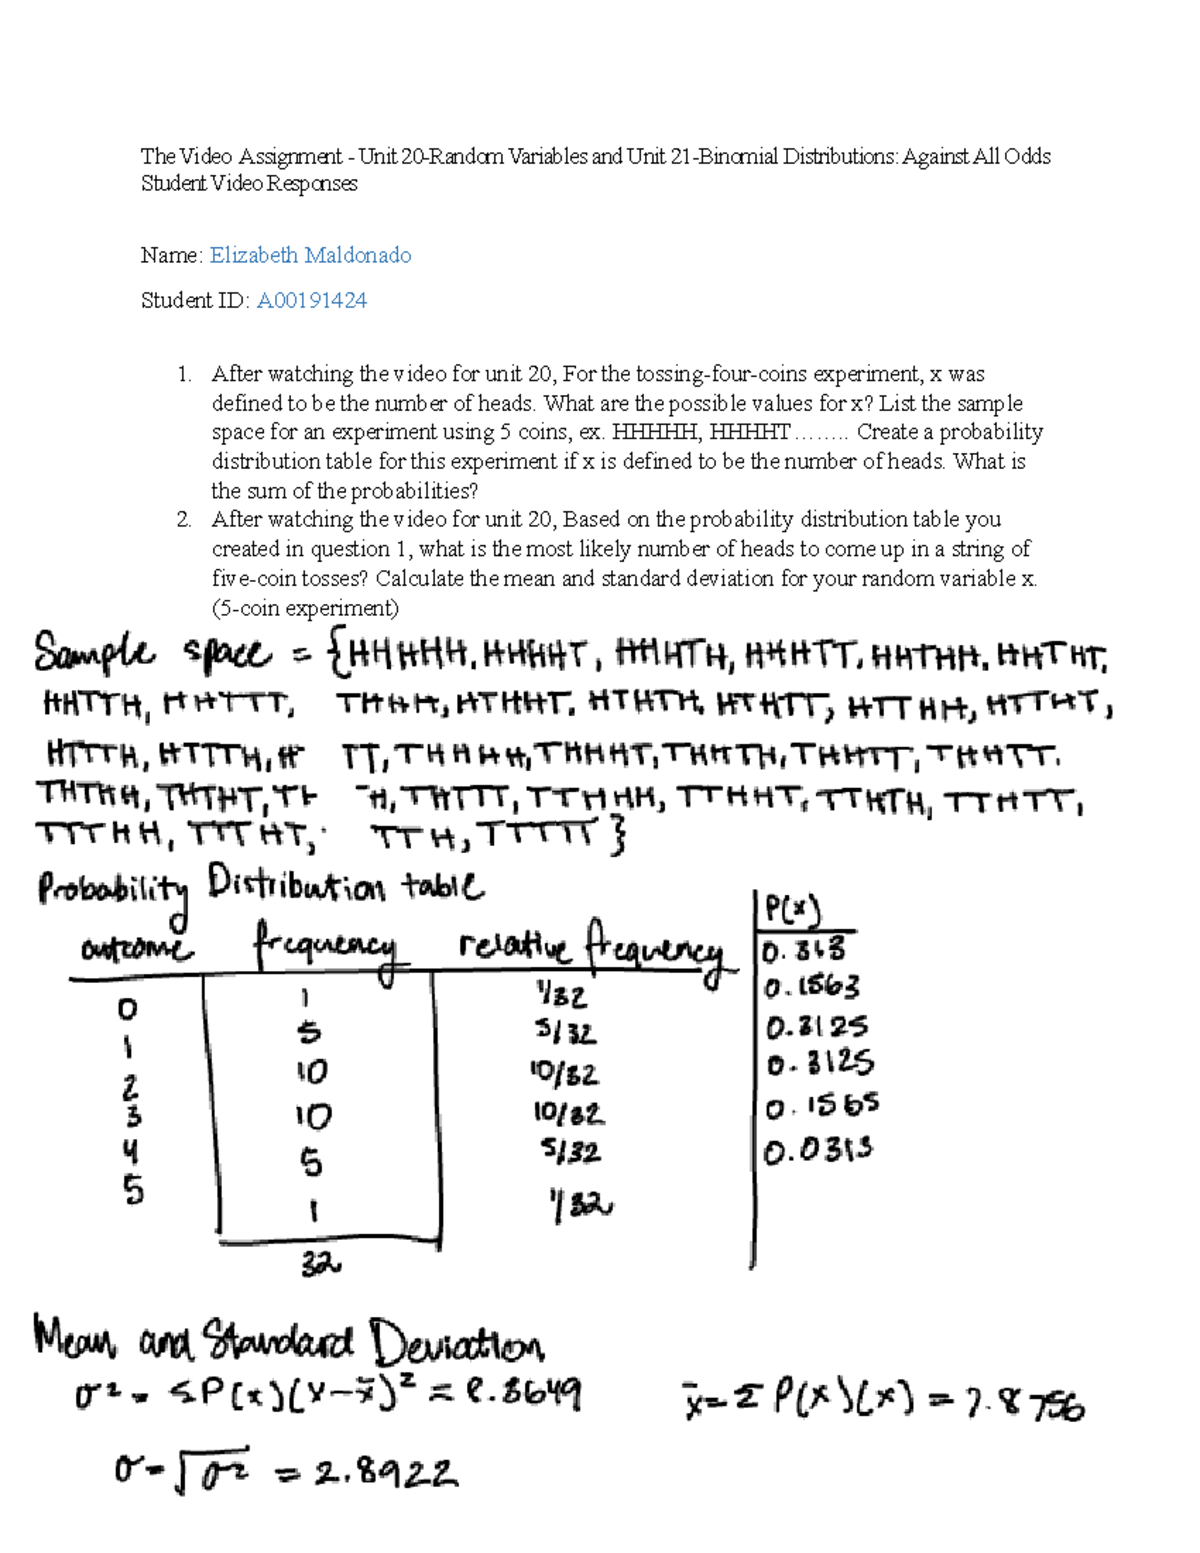 The Video Assignment - Unit 20-Random Variables and Unit 21-Binomial Distributions: Against All Odds
Student Video Responses
Name: Elizabeth Maldonado
Student ID: A00191424
1. After watching the video for unit 20, For the tossing-four-coins experiment, x was
defined to be the number of heads. What are the possible values for x? List the sample
space for an experiment using 5 coins, ex. HHHHH, HHHHT…….. Create a probability
distribution table for this experiment if x is defined to be the number of heads. What is
the sum of the probabilities?
2. After watching the video for unit 20, Based on the probability distribution table you
created in question 1, what is the most likely number of heads to come up in a string of
five-coin tosses? Calculate the mean and standard deviation for your random variable x.
(5-coin experiment)
Sample space = {HHHHH, HHHHT, HHHTH, HHHTT, HHTHH, HHTHT,
HHTTH, HHTTT, THHH, HTHHT, HTHTH, HTHTT, HTTHH, HTTHT,
HTTTH, HTTTH, H TT, THHHH, THHHT, THHTH, THHTT, THHTT.
THTHH, THTHT, TH H, THTTT, TTHHH, TTHHT, TTHTH, TTHTT,
TTTHH, TTTHT, TTH, TTTTT}
Probability Distribution table
outcome frequency relative frequency P(x)
0 1 1/32 0.313
1 5 5/32 0.1563
2 10 10/32 0.3125
3 10 10/32 0.3125
4 5 5/32 0.1565
5 1 1/32 0.0313
32
Mean and Standard Deviation
σ² = ΣP(x)(x-x̄)² = 8.3649 x̄ = Σ P(x)(x) = 7.8756
σ = √σ² = 2.8922